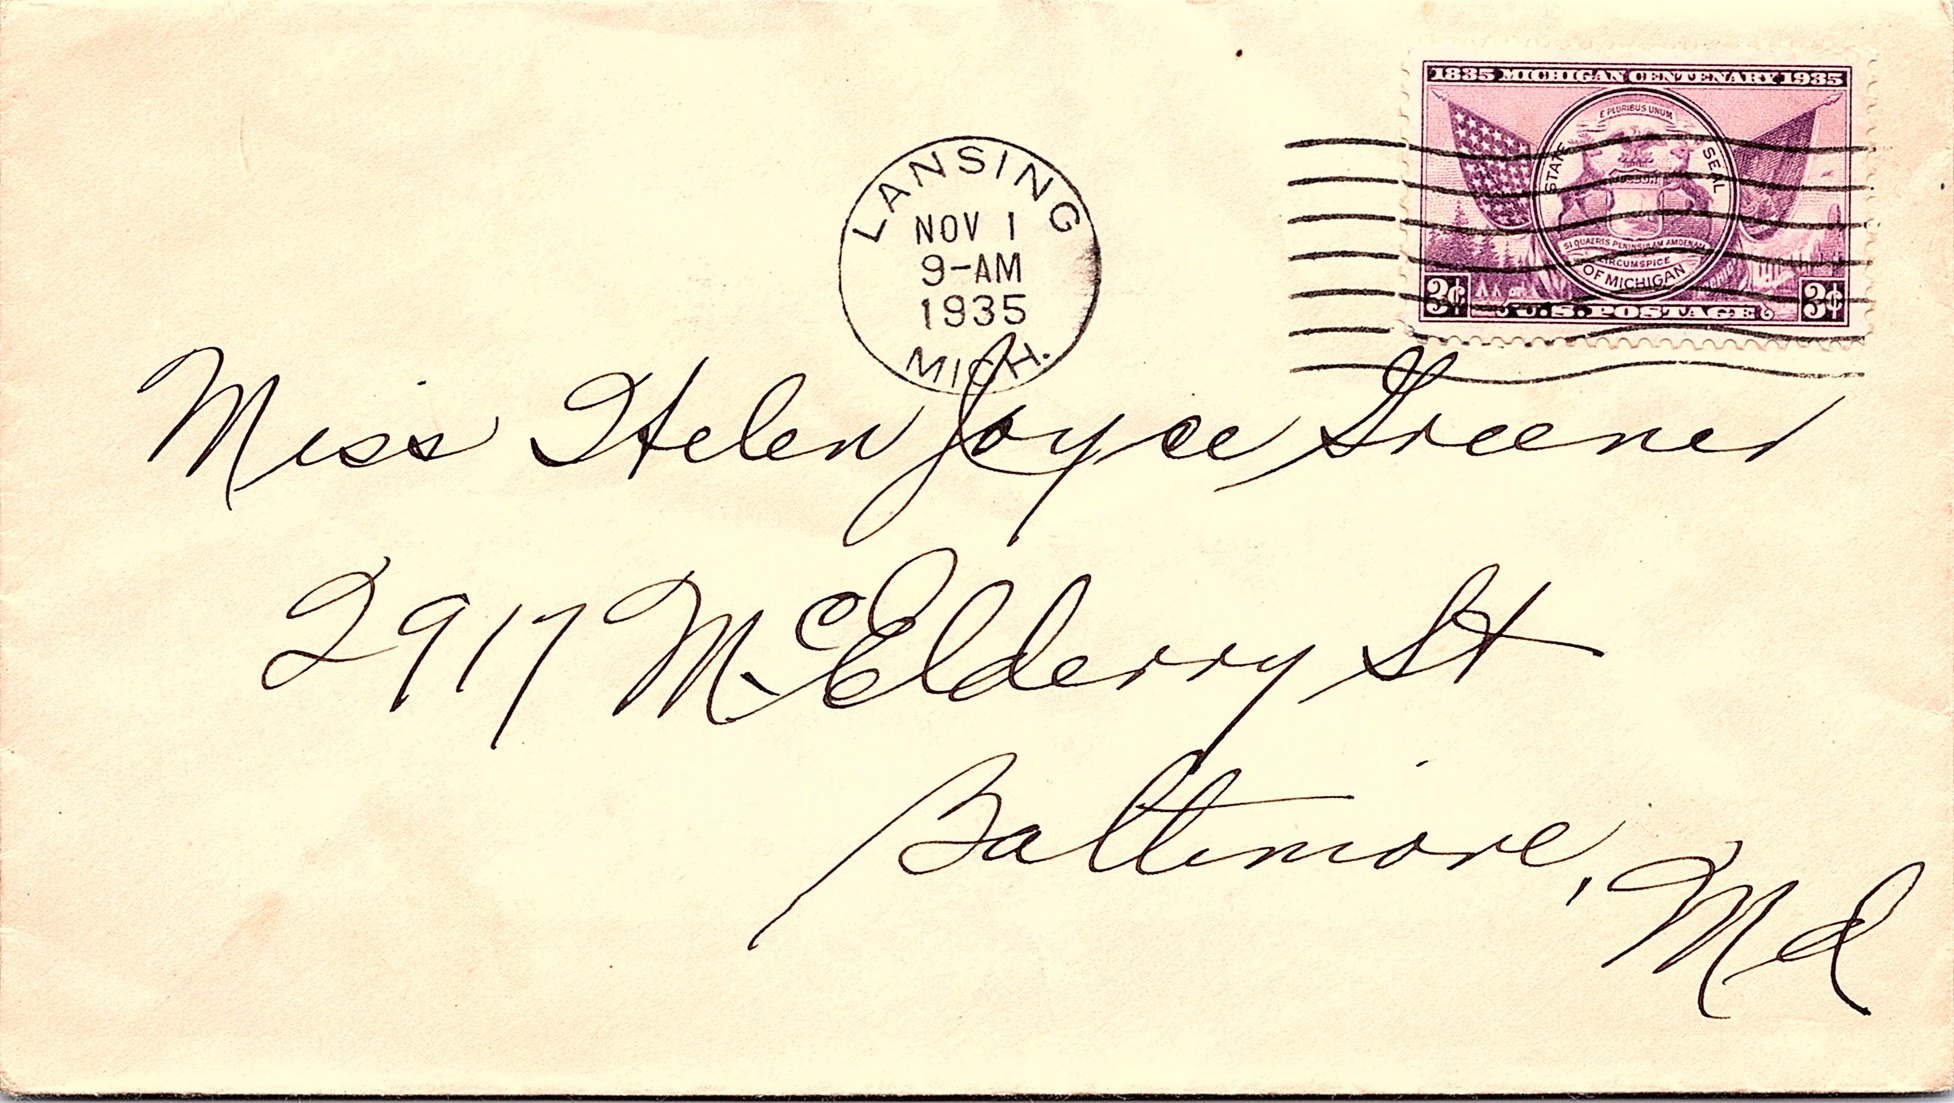 1835 MICHIGAN CENTENARY 1935
E PLURIBUS UNUM
STATE SEAL
SI QUAERIS PENINSULAM AMOENAM
CIRCUMSPICE
OF MICHIGAN
3¢ U.S. POSTAGE 3¢
LANSING
NOV 1
9-AM
1935
MICH.
Miss Helen Joyce Greener
2917 McElderry St
Baltimore, Md